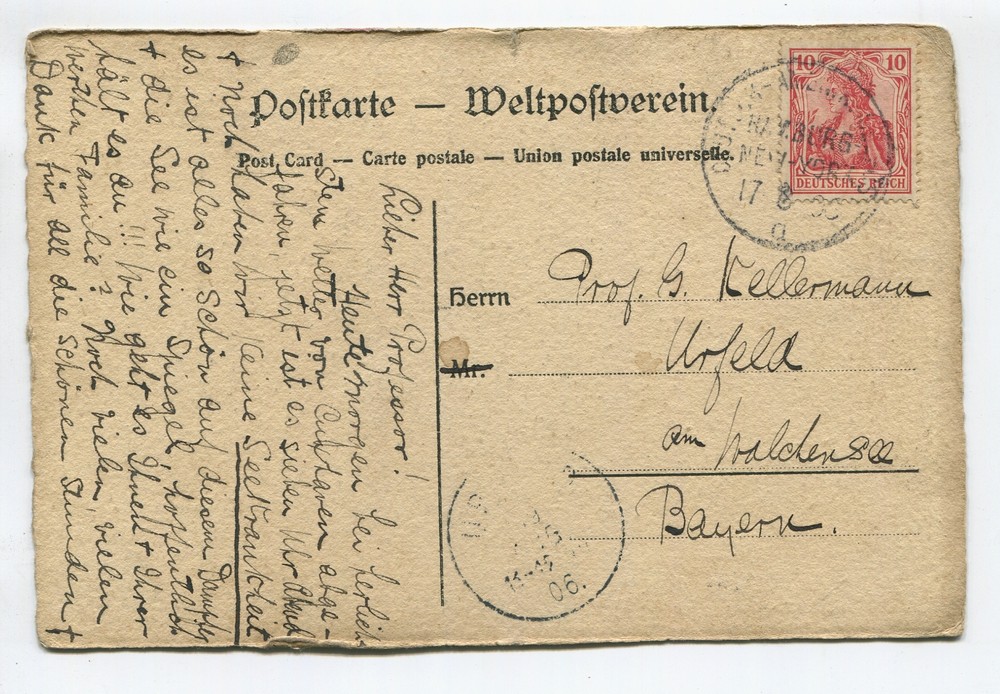 Postkarte — Weltpostverein.
Post Card — Carte postale — Union postale universelle.
10 10
DEUTSCHES REICH
HAMBURG-
NEW-YORK
17 8
a
Herrn Prof. G. Kellermann
Mr. Urfeld
am Walchensee
Bayern.
06.
Lieber Herr Professor!
Heute morgen bei herlich-
stem Wetter von Cuxhaven abge-
fahren, jetzt ist es sieben Uhr Abend
+ noch haben wir keine Seekrankheit
es ist alles so schön auf diesem Dampfer
+ die See wie ein Spiegel, hoffentlich
hält es an!!! Wie geht es Ihnen + Ihrer
werthen Familie? Noch vielen, vielen
Dank für all die schönen Stunden +